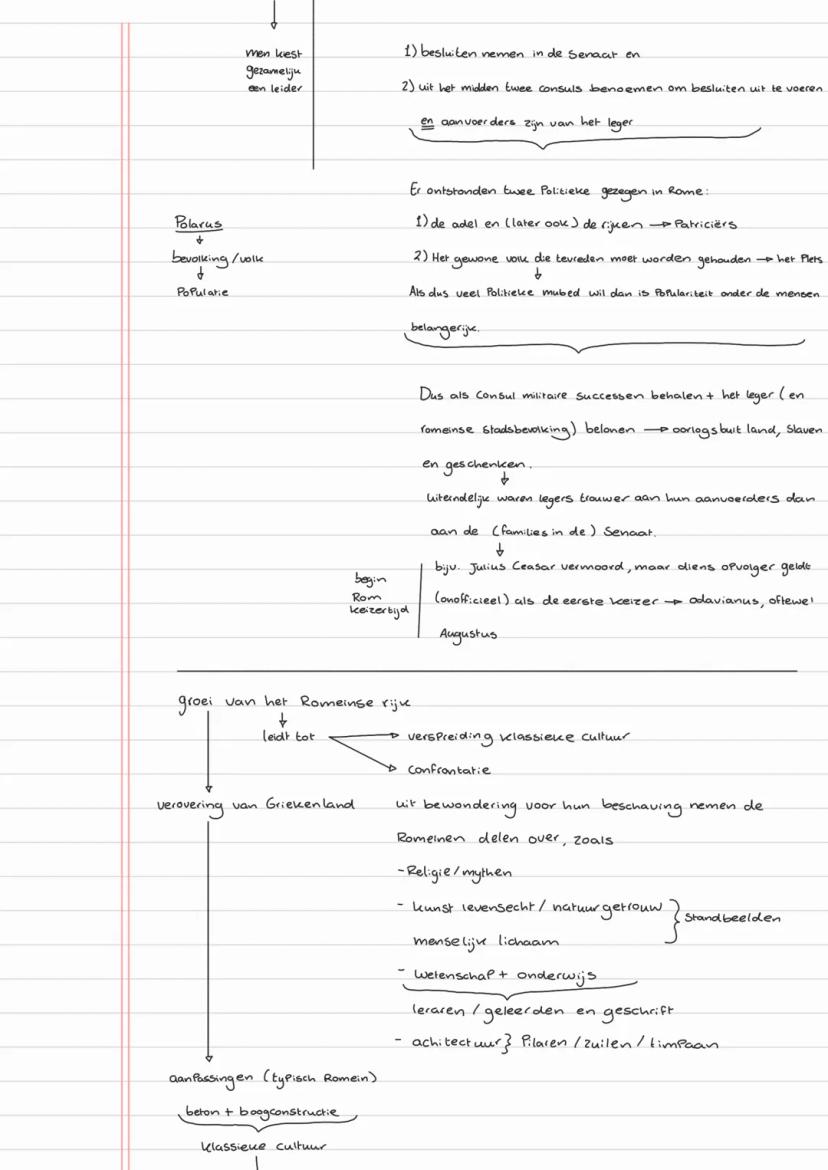 men kiest
gezamelijk
een leider
1) besluiten nemen in de Senaat en
2) uit het midden twee consuls benoemen om besluiten uit te voeren
en aanvoerders zijn van het leger
Er ontstonden twee Politieke gezegen in Rome:
1) de adel en (later ook) de rijken → Patriciërs
Polarus
↓
bevolking/volk
↓
Populatie
2) Het gewone volk die tevreden moet worden gehouden → het Plebs
↓
Als dus veel Politieke mubed wil dan is Populariteit onder de mensen
belangerijk.
Dus als Consul militaire successen behalen + het leger (en
romeinse stadsbevolking) belonen → oorlogsbuit land, slaven
en geschenken.
↓
Uiteindelijk waren legers trouwer aan hun aanvoerders dan
aan de (families in de) Senaat.
↓
begin
Rom
keizertijd
bijv. Julius Ceasar vermoord, maar diens opvolger geldt
(onofficieel) als de eerste keizer → odavianus, oftewel
Augustus
groei van het Romeinse rijk
↓
leidt tot
→ verspreiding klassieke cultuur
→ Confrontatie
verovering van Griekenland
uit bewondering voor hun beschaving nemen de
Romeinen delen over, zoals
- Religie/mythen
- kunst levensecht/ natuurgetrouw } Standbeelden
menselijk lichaam
- Wetenschap + onderwijs
leraren / geleerden en geschrift
- achitectuur} Pilaren /zuilen / timpaan
aanpassingen (typisch Romein)
beton + boogconstructie
klassieke cultuur